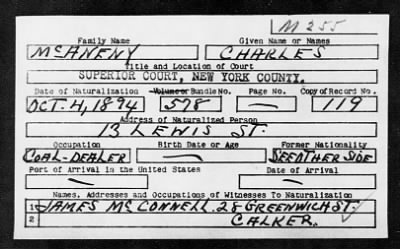 M 255
Family Name Given Name or Names
McANENY CHARLES
Title and Location of Court
SUPERIOR COURT, NEW YORK COUNTY.
Date of Naturalization Volume or Bundle No. Page No. Copy of Record No.
OCT. 4, 1894 578 — 119
Address of Naturalized Person
13 LEWIS ST.
Occupation Birth Date or Age Former Nationality
COAL-DEALER — SEE OTHER SIDE
Port of Arrival in the United States Date of Arrival
— —
Names, Addresses and Occupations of Witnesses To Naturalization
1 JAMES McCONNELL. 28 GREENWICH ST.
2 CALKER.